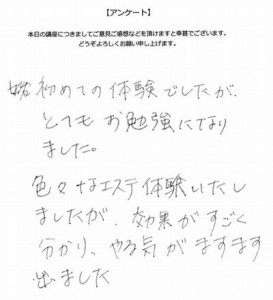 【アンケート】
本日の講座につきましてご意見ご感想などを頂けますと幸甚でございます。
どうぞよろしくお願い申し上げます。
初めての体験でしたが、
とてもお勉強になり
ました。
色々なエステ体験いたし
ましたが、効果がすごく
分かり、やる気がますます
出ました